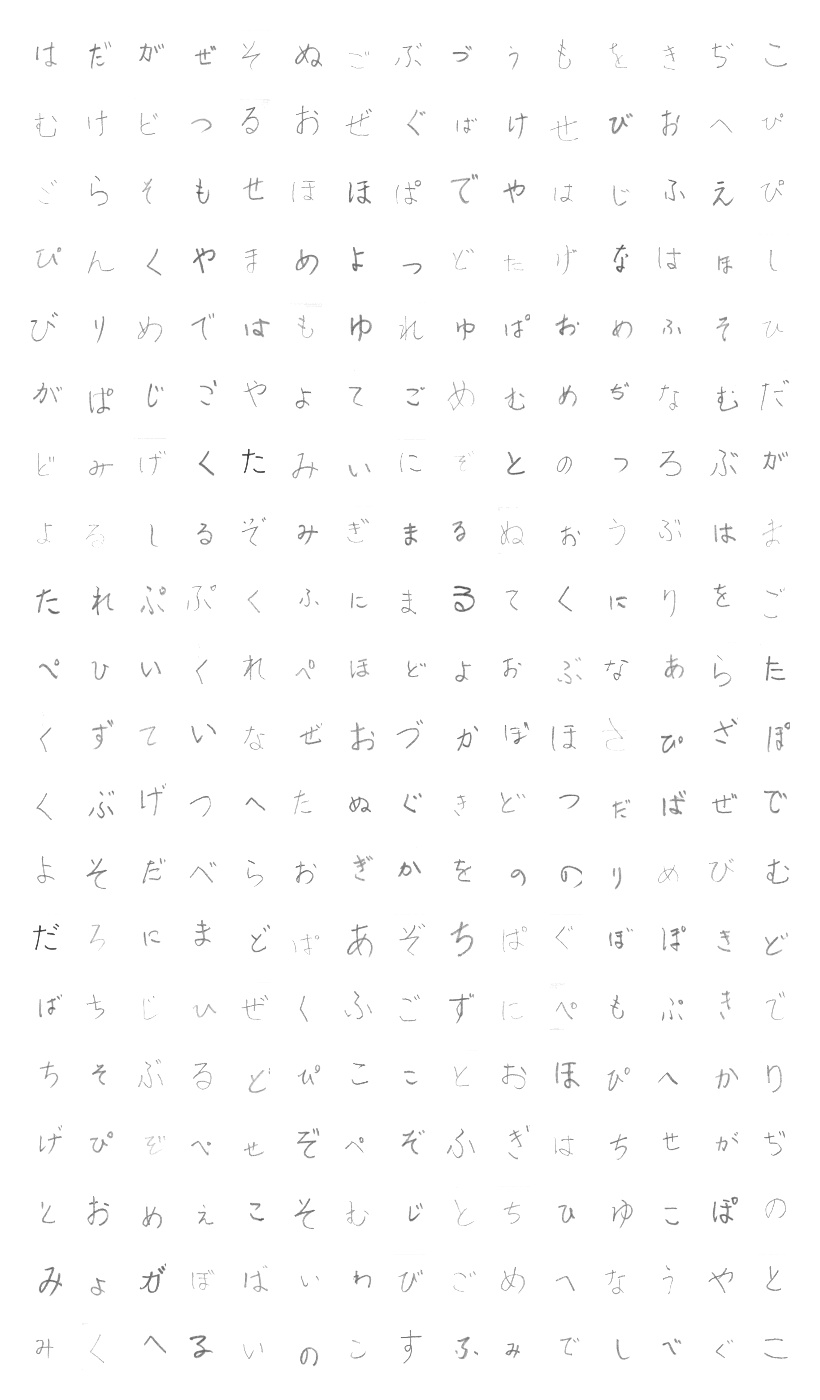 はだがぜそぬごぶづうもをきぢこ
むけどつるおぜぐばけせびおへぴ
ごらそもせほほぱでやはじふえぴ
ぴんくやまめよっどたげなはほし
びりめではもゆれゅぱおめふそひ
がぱじごやよてごめむめぢなむだ
どみげくたみいにぞとのつろぶが
よるしるぞみぎまるぬおうぶはま
たれぷぷくふにまるてくにりをご
ぺひいくれぺほどよおぶなあらた
くずていなぜおづかぼほさぴざぽ
くぶげつへたぬぐきどつだばぜで
よそだべらおぎかをののりめびむ
だろにまどぱあぞちぱぐぼぽきど
ばちじひぜくふごずにぺもぷきで
ちそぶるどぴここりとおほぴへかり
げぴぞぺせぞぺぞふぎはちせがぢ
とおめえこそむじとちひゆこぽの
みよがぼばいわびごめへなうやと
みくへるいのこすふみでしべぐこ